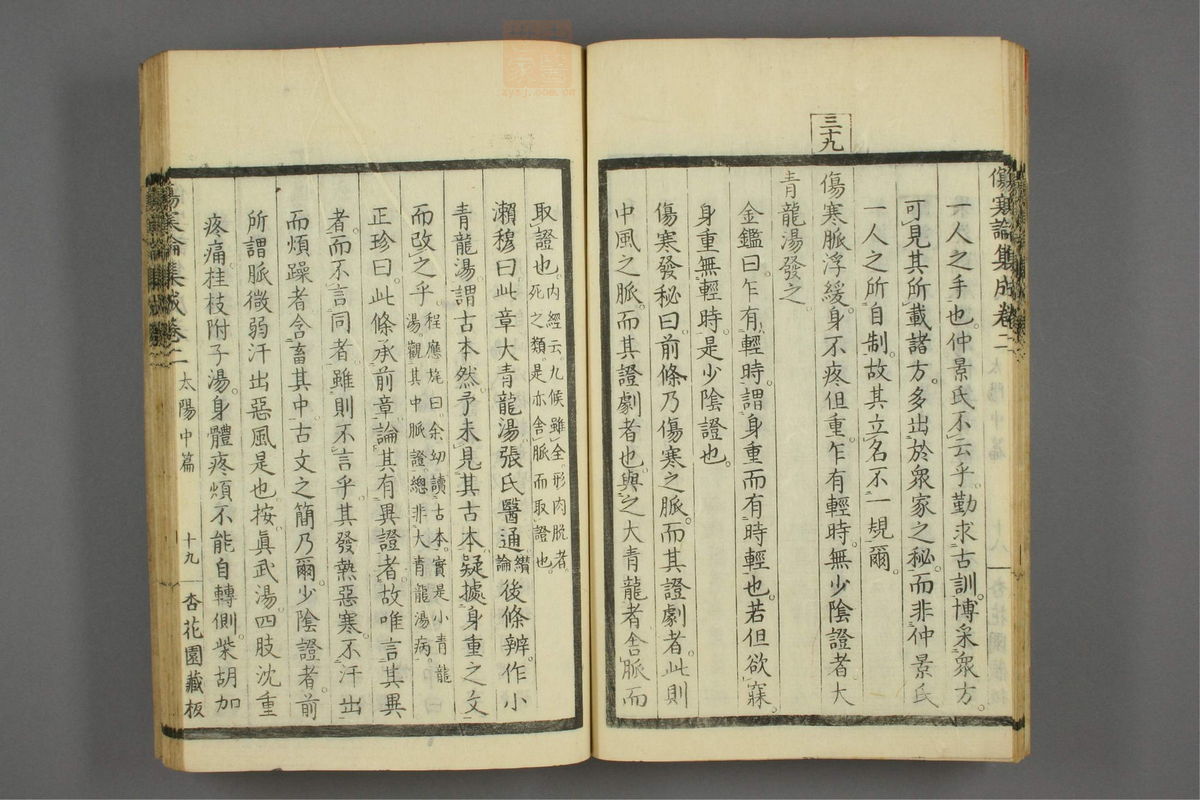 三十九
傷寒論集成卷二
一人之手也。仲景氏不云乎。勤求古訓。博采衆方。
可見其所載諸方。多出於衆家之秘。而非仲景氏
一人之所自制。故其立名不一規爾。
傷寒脈浮緩。身不疼但重。乍有輕時。無少陰證者。大
青龍湯發之
金鑑曰。乍有輕時。謂身重而有時輕也。若但欲寐。
身重無輕時。是少陰證也。
傷寒發秘曰。前條乃傷寒之脈。而其證劇者。此則
中風之脈。而其證劇者也。與之大青龍者。舍脈而
取證也。內經云。九候雖全。形肉脫者。
死之類。是亦舍脈而取證也。
瀨穆曰。此章大青龍湯。張氏醫通纘論後條辨。作小
青龍湯。謂古本然。予未見其古本。疑據身重之文
而改之乎。程應旄曰。余幼讀古本。實是小青龍
湯。觀其中脈證。總非大青龍湯病。
正珍曰。此條承前章。論其有異證者。故唯言其異
者。而不言同者。雖則不言乎。其發熱惡寒。不汗出
而煩躁者。含畜其中。古文之簡乃爾。少陰證者。前
所謂脈微弱汗出惡風是也。按眞武湯。四肢沈重
疼痛。桂枝附子湯。身體疼煩不能自轉側。柴胡加
傷寒論集成卷二
太陽中篇
十九
杏花園藏板